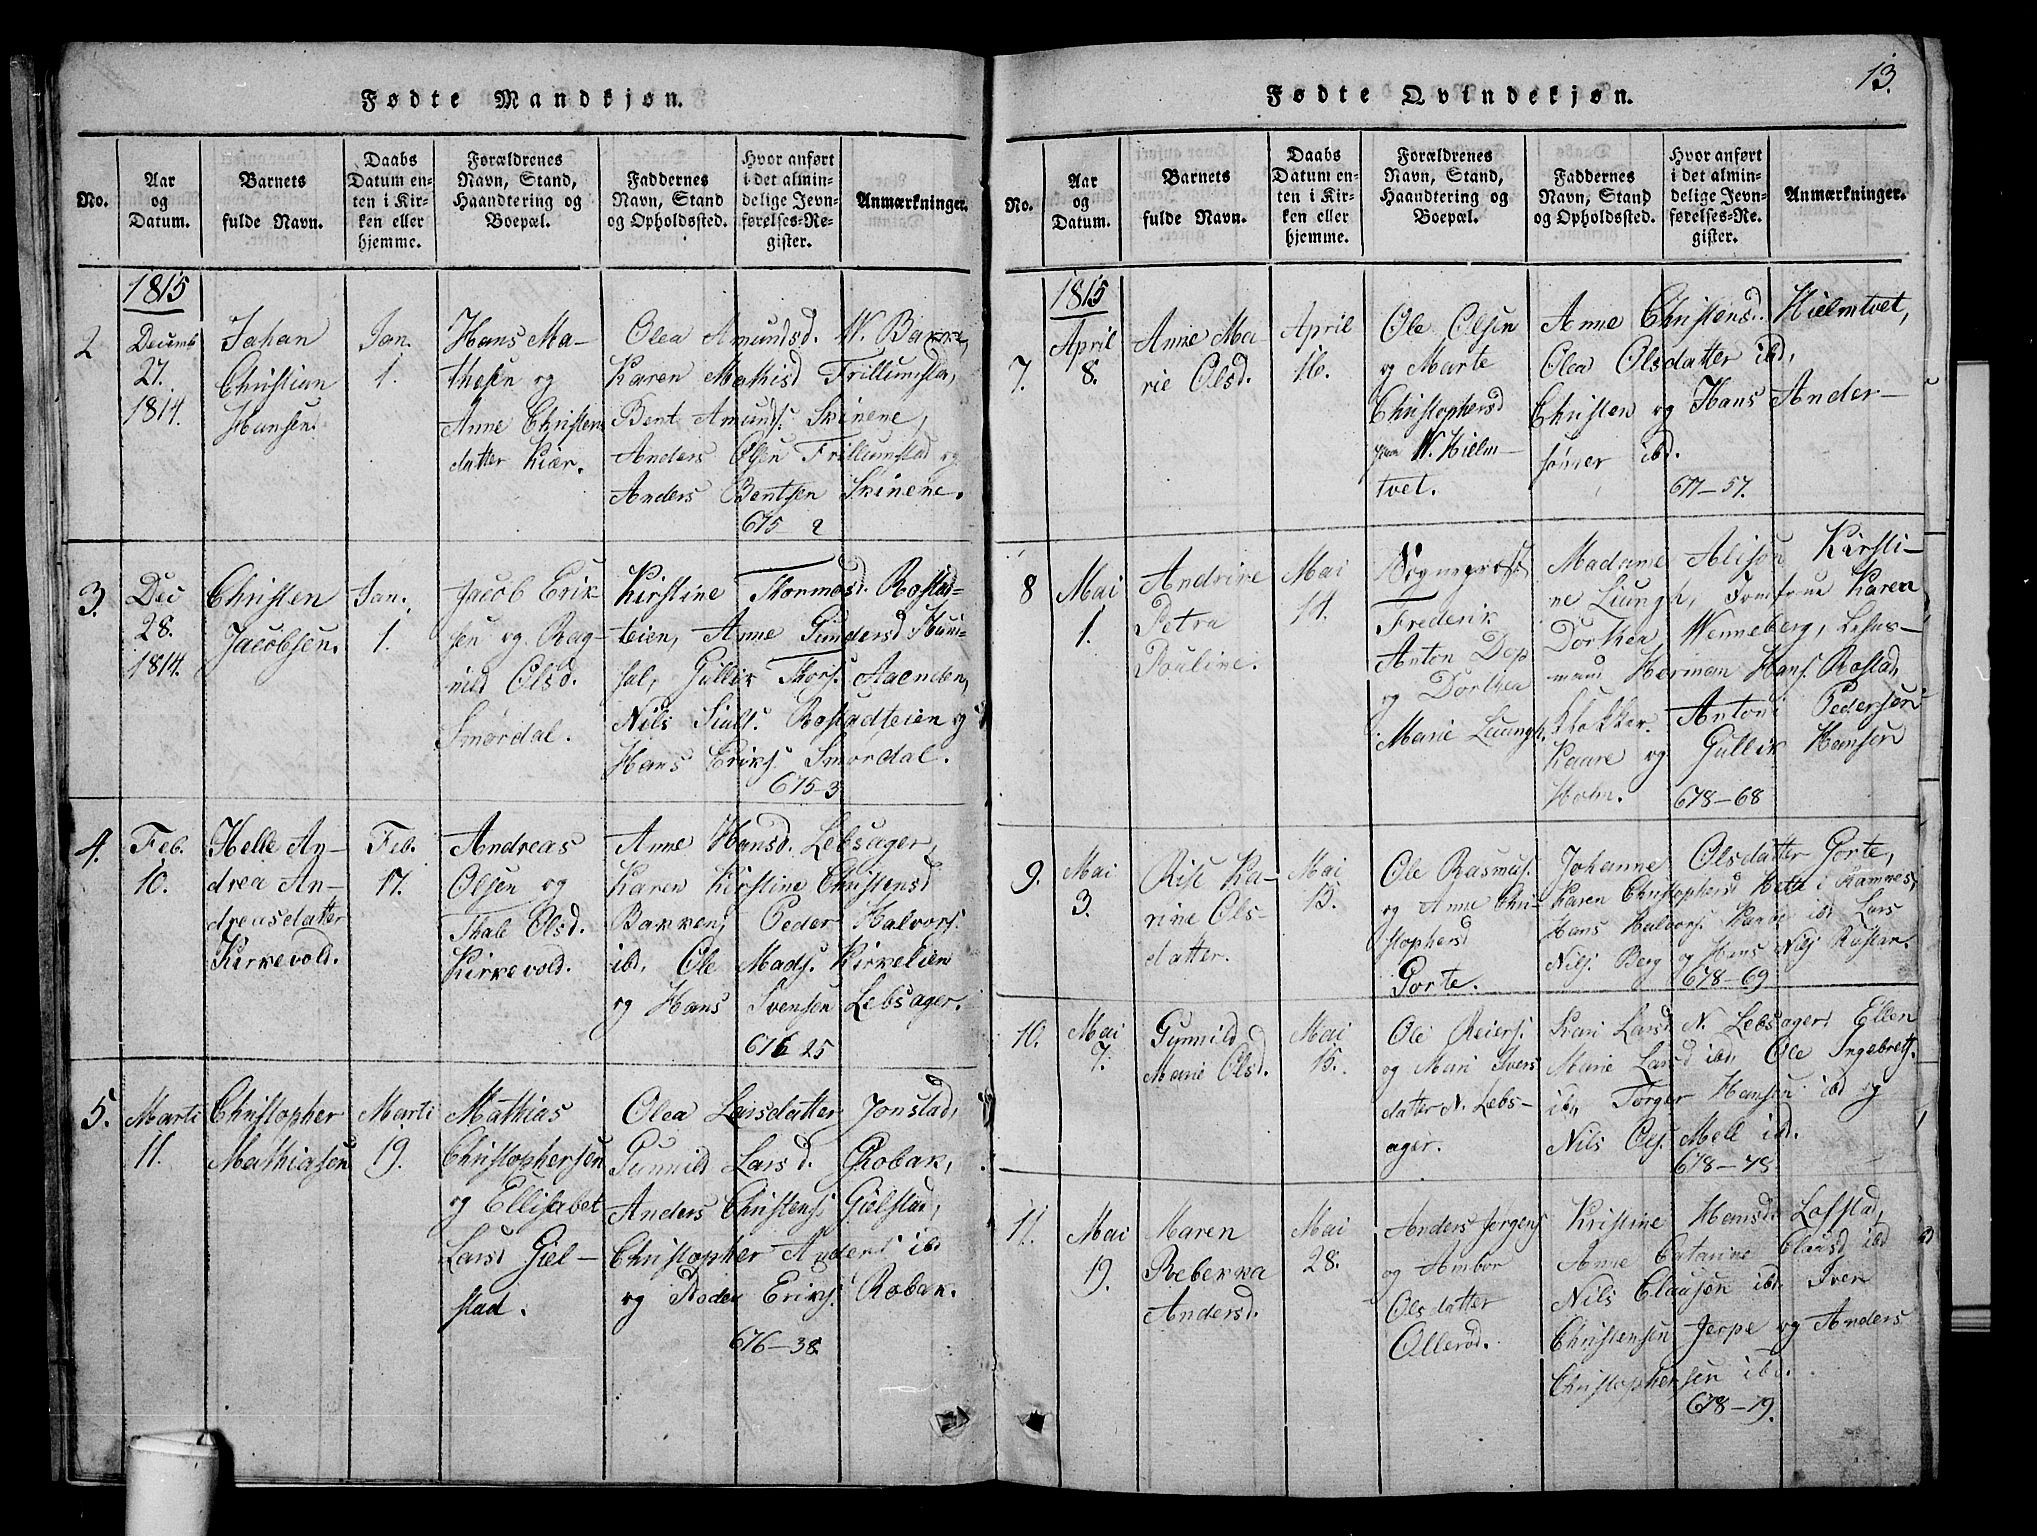 Fødte Mandkjøn.
No.
Aar
og
Datum.
Barnets
fulde Navn.
Daabs
Datum en-
ten i Kir-
ken eller
hjemme.
Forældrenes
Navn, Stand,
Haandtering og
Boepæl.
Faddernes
Navn, Stand
og Opholdssted.
Hvor anført
i det almin-
delige Jevn-
førelses-Re-
gister.
Anmærkninger.
1815
2
Decemb
27.
1814.
Johan
Christian
Hansen.
Jan.
1.
Hans Ma-
thesen og
Anne Christens
datter Kiær.
Olea Amundsd. N. Bakke,
Karen Mathisd Trillumstad,
Bent Amunds. Skinene,
Anders Olsen Trillumstad og
Anders Bentsen Skinene.
675 2
3.
Dec
28.
1814.
Christen
Jacobsen.
Jan.
1.
Jacob Erik-
sen og Rag-
nild Olsd.
Smørdal.
Kirstine Thormosd. Rostad-
teien, Anne Gundersd
Gullik Thors. Aaenden,
Nils Rostadteien og
Hans Eriks. Smørdal.
675-3
4.
Feb.
10.
Helle An-
drea An-
dreasdatter
Kirkevold.
Feb.
17.
Andreas
Olsen og
Thale Olsd.
Kirkevold.
Anne Hansd. Lebsager,
Karen Kirstine Christensd
Bakken, Peder Halvors.
ibd, Ole Mads. Kirkelien
og Hans Svensen Lebsager.
676 25
5.
Marti
11.
Christopher
Mathiasen
Marti
19.
Mathias
Christophersen
og Ellisabet
Larsd Giel-
stad.
Olea Larsdatter Jonstad,
Gunnild Larsd. Robak,
Anders Christens. Gielstad,
Christopher Anders ibd
og Peder Eriks. Robak.
676-38
13.
Fødte Qvindekjøn.
No.
Aar
og
Datum.
Barnets
fulde Navn.
Daabs
Datum en-
ten i Kir-
ken eller
hjemme.
Forældrenes
Navn, Stand,
Haandtering og
Boepæl.
Faddernes
Navn, Stand
og Opholdssted.
Hvor anført
i det almin-
delige Jevn-
førelses-Re-
gister.
Anmærkninger.
1815
7.
April
8.
Anne Ma-
rie Olsd.
April
16.
Ole Olsen
og Marte
Christophersd
N. Hielm-
tvet.
Anne Christensd. Hielmtvet,
Olea Olsdatter ibd,
Christen og Hans Ander-
sønner ibd.
677-57.
8
Mai
1.
Andrine
Petra
Pouline.
Mai
14.
Sognepræst
Frederik
Anton Dop
og Dorthea
Marie Liungh.
Madame Alison Kirsti-
ne Liungh, Jomfrue Karen
Dorthea Wenneberg, Lehns-
mand Herman Hans. Rostad,
Klokker Antoni Pedersen
Kaare og Gullik Hansen
Holm.
678-68
9.
Mai
3.
Rise Ka-
rine Ols-
datter.
Mai
15.
Ole Rasmus.
og Anne Chri-
stophersd
Gorte.
Johanne Olsdatter Gorte,
Karen Christophersd Helle i Ramnes,
Hans Halvors. ibd Lars
Nils. Berg og Hans Nils
678-69
10.
Mai
7.
Gunnild
Marie Olsd.
Mai
15.
Ole Reiers.
og Mari Ivers
datter N. Lebs-
ager.
Kari Larsd N. Lebsager, Ellen
Marie Larsd ibd, Ole Ingebrets.
ibd, Torger Hansen ibd og
Nils Ols. Melle ibd.
678-78
11.
Mai
19.
Maren
Rebekka
Andersd.
Mai
28.
Anders Jørgens
og Ambor
Olsdatter
Ollerød.
Kristine Hansd. Lofstad,
Anne Catarine Clausd ibd
Nils Clausen ibd. Iver
Christensen Jerpe og Anders
Christophersen ibd.
678-79.